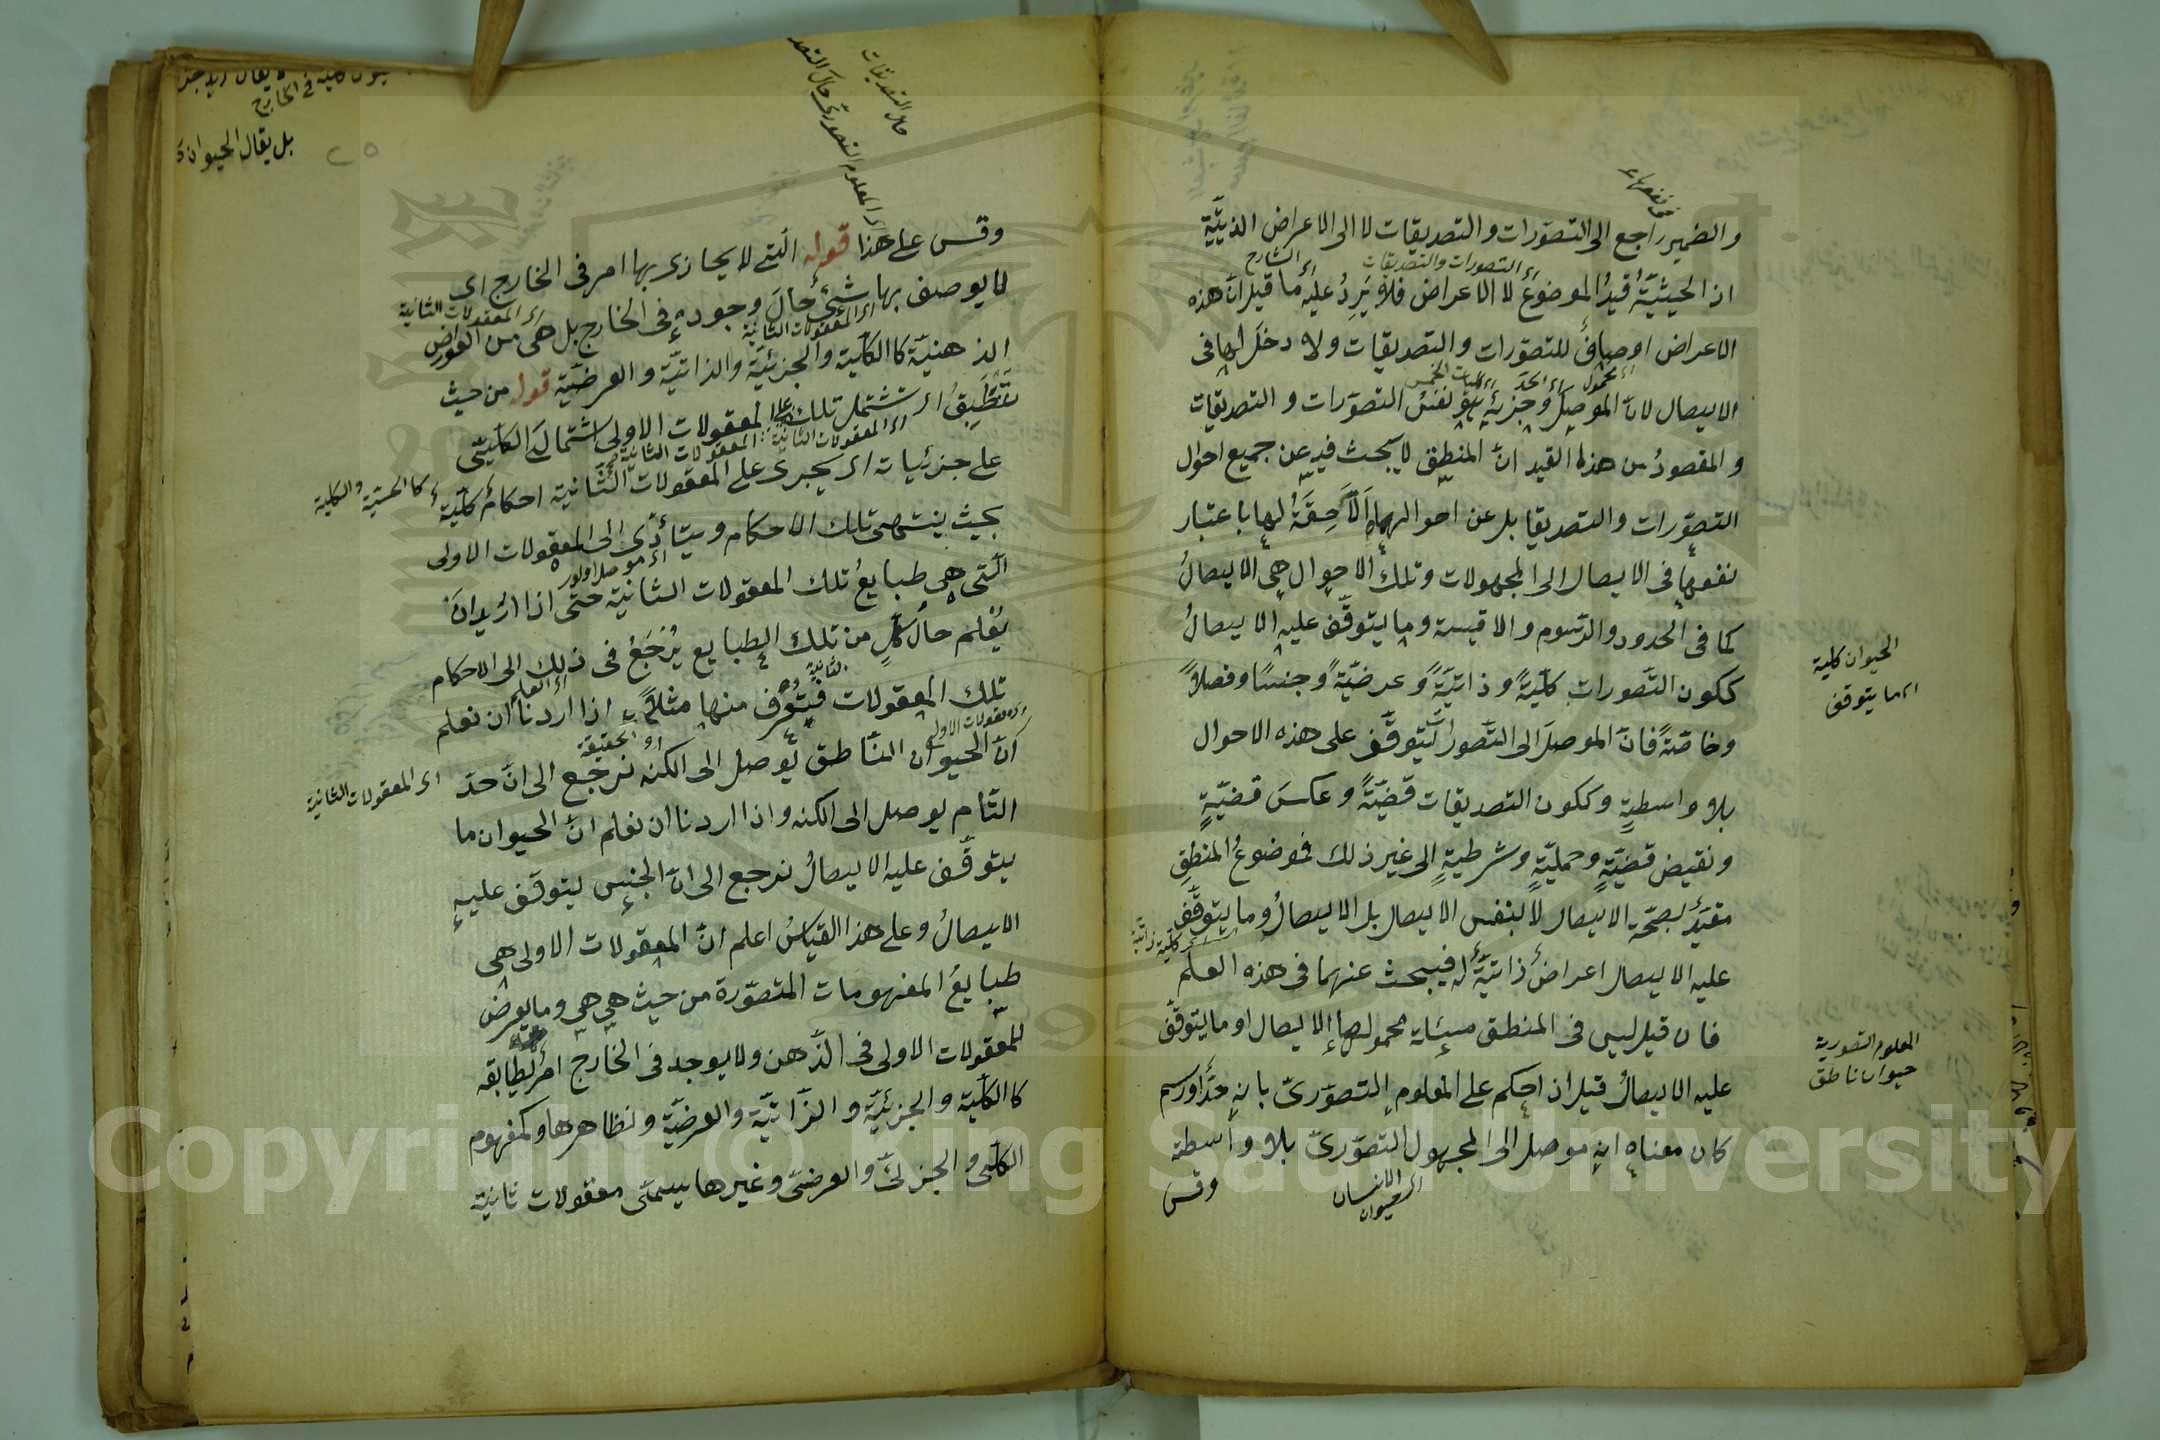 والضمير راجع الى التصوّرات والتصديقات لا الى الاعراض الذاتيّة
اى التصورات والتصديقات
اى الشارح
اذ الحيثيّة قيدُ الموضوع لا الاعراض فلا يَرِدُ عليه ما قيل انّ هذه
الاعراض اوصاف للتصوّرات والتصديقات ولا دخل لها فى
الايصال لانّ الموصل وجزئه هو نفسُ التصوّرات والتصديقات
والمقصودُ من هذا القيد انّ المنطقى لا يبحث فيه عن جميع احوال
التصوّرات والتصديقا بل عن احوالهما اَلّلَاحِقَةُ لها باعتبار
نفعها فى الايصال الى المجهولات وتلك الاحوال هى الايصالُ
كما فى الحدود والرّسوم والاقيسة وما يتوقّف عليه الايصالُ
ككون التّصورات كلّيةً وذاتيّةً وعرضيّةً وجنسًا وفصلاً
وخاصّةً فانّ الموصلَ الى التّصورات يتوقّف على هذه الاحوال
بلا واسطةٍ وككون التصديقات قضيّةً وعكسَ قضيّةٍ
ونقيض قضيّةٍ وحمليّةٍ وشرطيةٍ الى غير ذلك فموضوعُ المنطقِ
مقيّدٌ بصحّة الايصال لا بنفس الايصال بل الايصالُ وما يتوقّف
عليه الايصال اعراضٌ ذاتيّةٌ له فيبحث عنهما فى هذه العلم
فان قيل ليس فى المنطق مسئلة محمولها الايصال او ما يتوقّف
عليه الايصالُ قيل اذ احكم على المعلوم التصوّرىّ بانه حدّ او رسم
كان معناه انه موصل الى المجهول التصوّرىّ بلا واسطة
وقس
الحيوان كلية
اى ما يتوقف
المعلوم التصورية
حيوان ناطق
بل يقال الحيوان
فى الخارج
حال التصديقات
اى المعلوم التصورىّ حال
وقس على هذا قوله الّتى لا يحاذى بها امر فى الخارج اى
لا يوصف بها شئٌ حالَ وجوده فى الخارج بل هى من العوارض
اى المعقولات الثانية
اى المعقولات الثانية
الذهنيّة كالكلّية والجزئيّة والذاتيّة والعرضيّة قوله من حيث
تَنْطَبِقُ اى تشتمل تلك على المعقولات الاولى اشتمالَ الكلّيّى
اى المعقولات الثانية
على جزئيات اى يجرى على المعقولات الثّانية احكام كلّيّة
بحيث ينتهى تلك الاحكام ويتأدّى الى المعقولات الاولى
الّتى هى طبايعُ تلك المعقولات الثانيّة حتّى اذا اُريد انّ
يُعْلم حالُ كلٍّ من تلك الطبايع يُرْجَعُ فى ذلك الى الاحكام
تلك المعقولات الثانية فتُعرف منها مثلاً اذا اردنا ان نعلم
انّ الحيوان النّاطق يُوصل الى الكنه نرجع الى انّ حدّ
اى الحقيقة
اى المعقولات الثانية
التّام يوصل الى الكنه واذا اردنا ان نعلم انّ الحيوان ما
يتوقّف عليه الايصالُ نرجع الى انّ الجنس يتوقّف عليه
الايصالُ وعلى هذا القياسُ اعلم انّ المعقولات الاولى هى
طبايعُ المفهومات المتصوّرة من حيث هى هى وما يعرض
للمعقولات الاولى فى الذّهن ولا يوجد فى الخارج امرٌ يطابقه
كالكلّية والجزئيّة والذّاتيّة والعرضيّة ونظاهرها وكمفهوم
الكلّى والجزئىّ والعرضىّ وغيرها يسمّى معقولات ثانيّة
Copyright © King Saud University